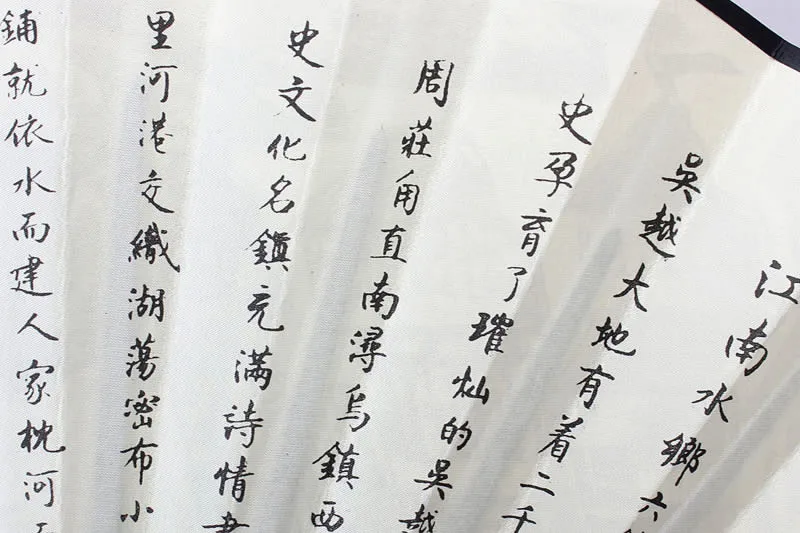 江南水鄉六
吳越大地有着二千
史孕育了璀燦的吳越
周莊甪直南潯烏鎮西
史文化名鎮充滿詩情
里河港交織湖蕩密布小
鋪就依水而建人家枕河